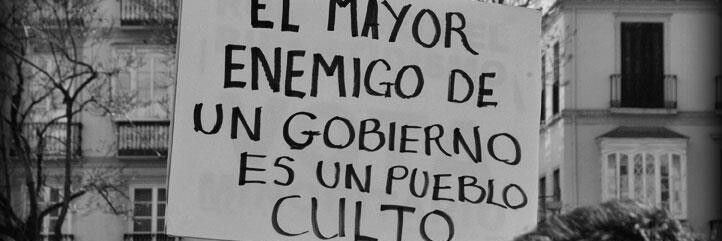 EL MAYOR
ENEMIGO DE
UN GOBIERNO
ES UN PUEBLO
CULTO